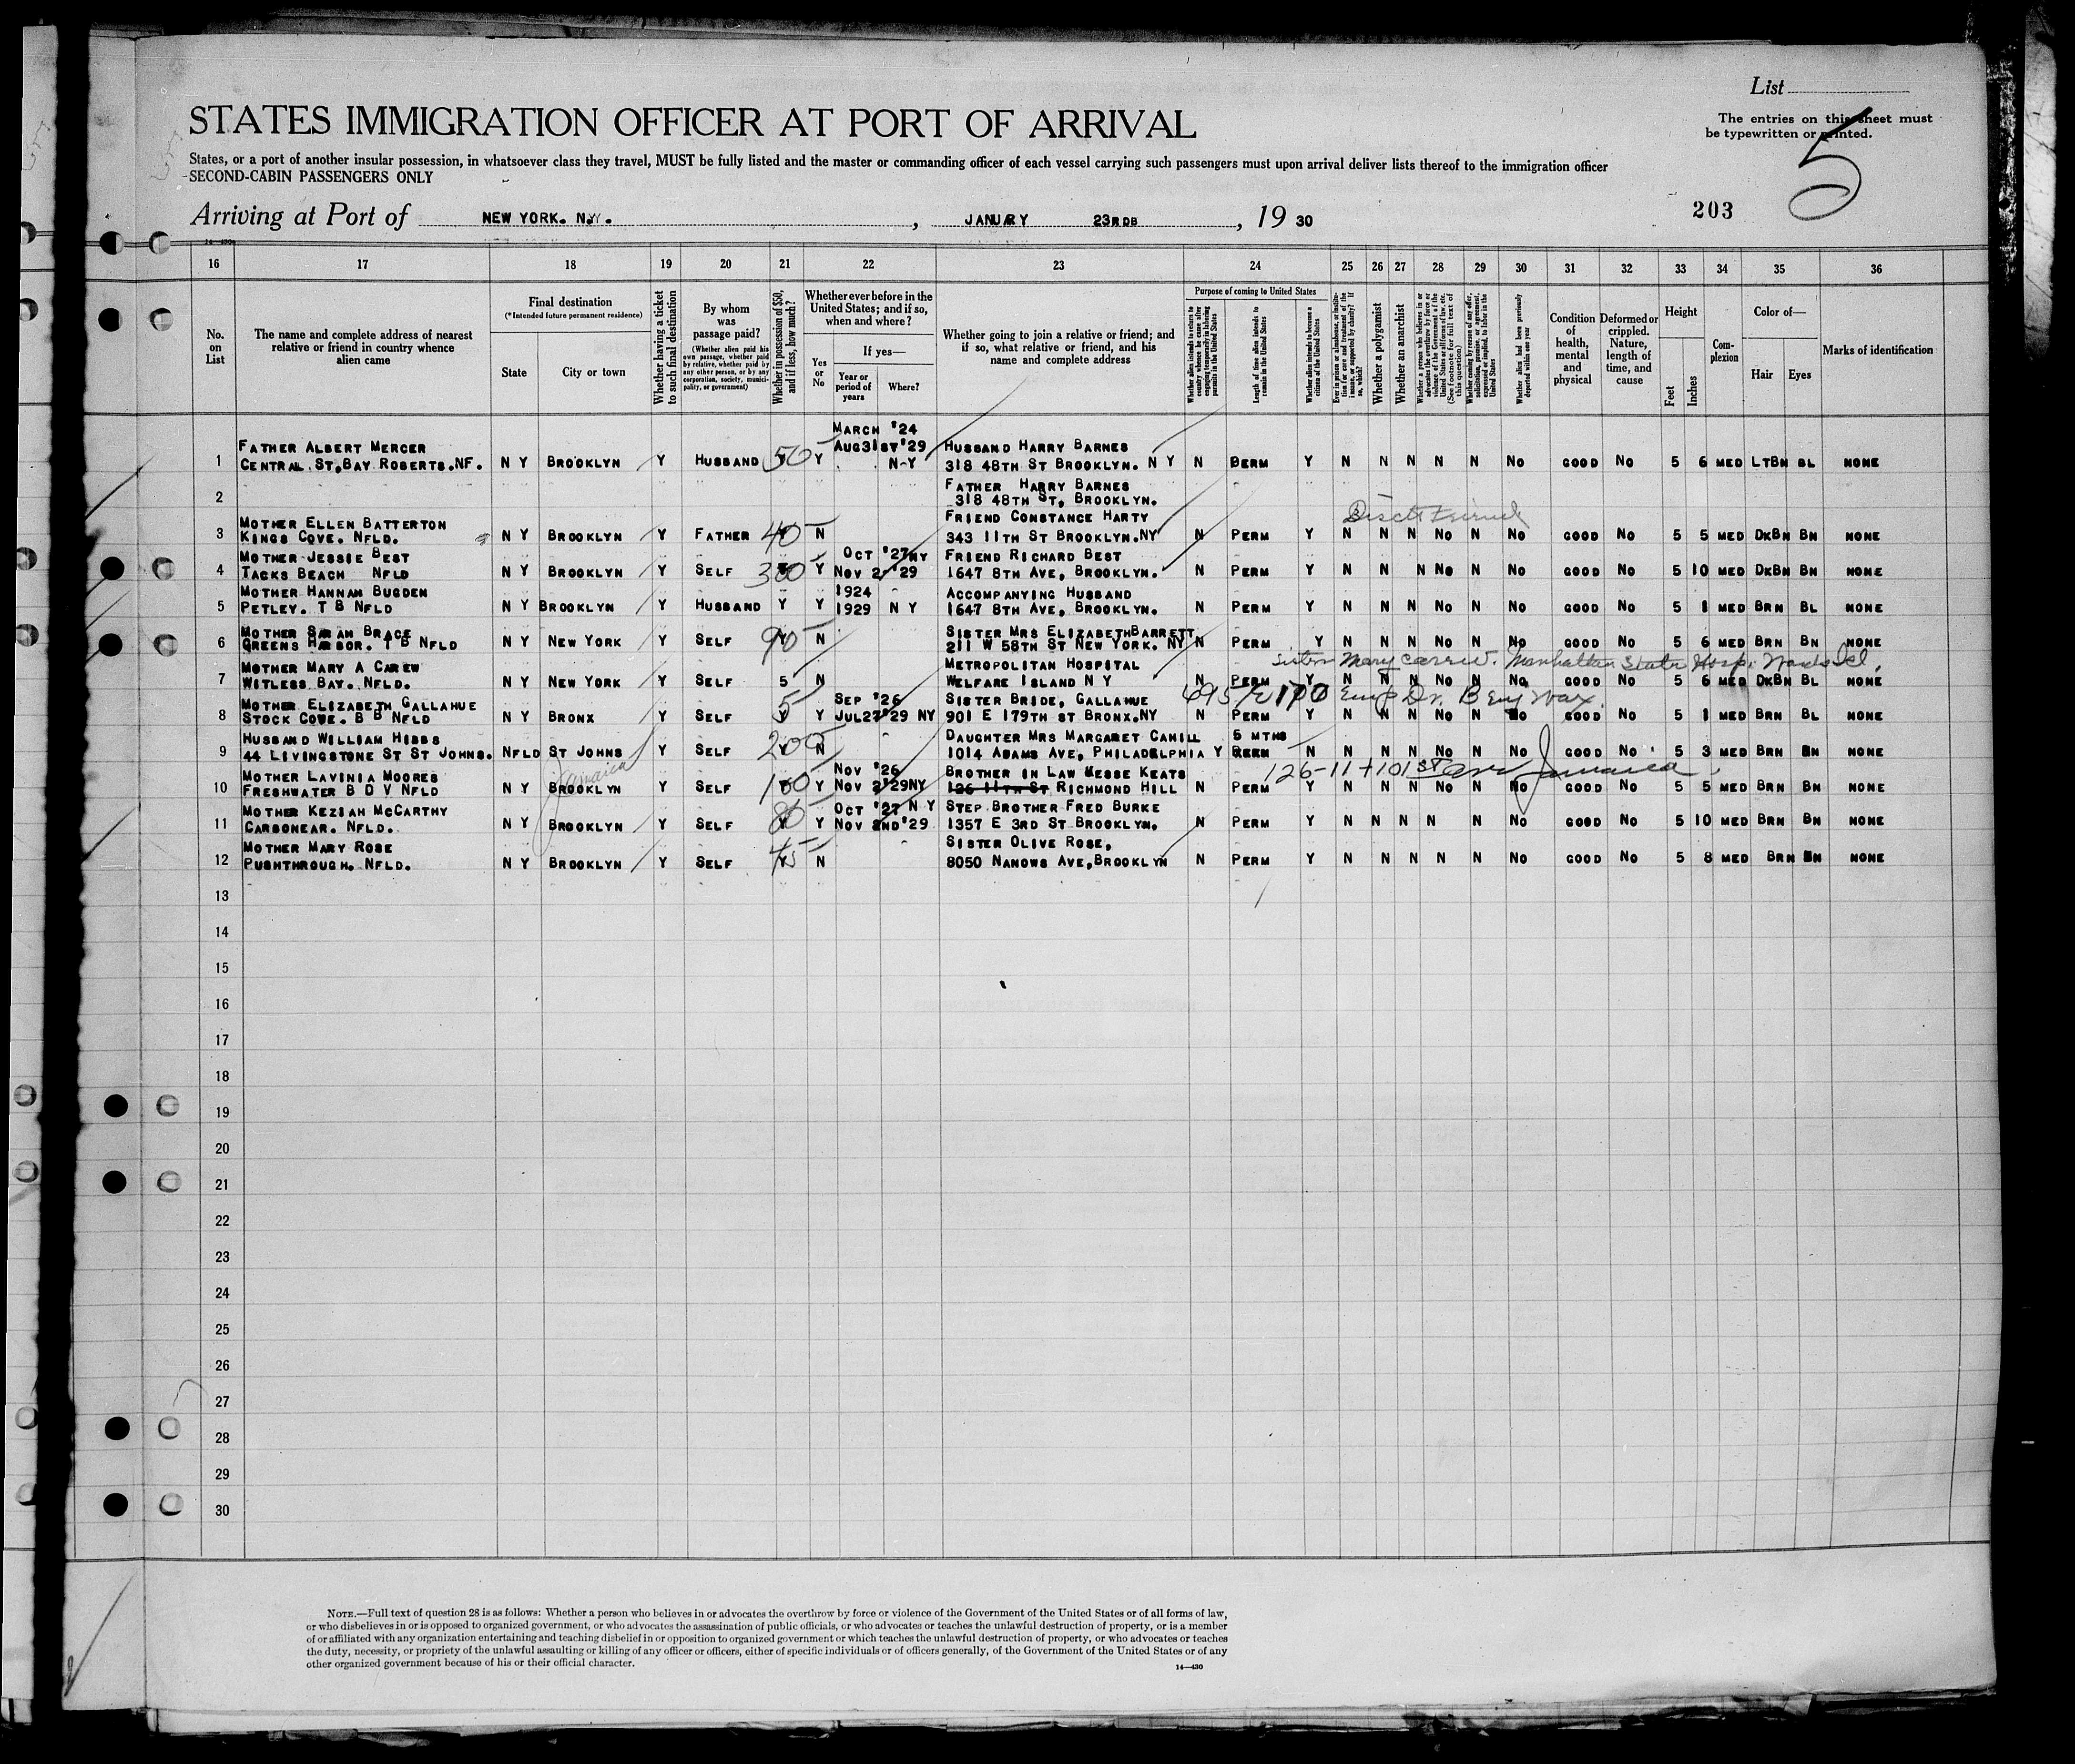 List
The entries on this sheet must
be typewritten or printed.
5
STATES IMMIGRATION OFFICER AT PORT OF ARRIVAL
States, or a port of another insular possession, in whatsoever class they travel, MUST be fully listed and the master or commanding officer of each vessel carrying such passengers must upon arrival deliver lists thereof to the immigration officer
SECOND-CABIN PASSENGERS ONLY
203
Arriving at Port of NEW YORK. N.Y. , JANUARY 23RD , 19 30
16 17 18 19 20 21 22 23 24 25 26 27 28 29 30 31 32 33 34 35 36
No. on List
The name and complete address of nearest relative or friend in country whence alien came
Final destination
(*Intended future permanent residence)
State
City or town
Whether having a ticket to such final destination
By whom was passage paid?
(Whether alien paid his own passage, whether paid by relative, whether paid by any other person, or by any corporation, society, municipality, or government)
Whether in possession of $50, and if less, how much?
Whether ever before in the United States; and if so, when and where?
Yes or No
If yes—
Year or period of years
Where?
Whether going to join a relative or friend; and if so, what relative or friend, and his name and complete address
Purpose of coming to United States
Length of time alien intends to remain in the United States
Whether alien intends to become a citizen of the United States
Whether a polygamist
Whether an anarchist
Whether alien had been previously deported within one year
Condition of health, mental and physical
Deformed or crippled. Nature, length of time, and cause
Height
Feet
Inches
Complexion
Color of—
Hair
Eyes
Marks of identification
MARCH '24
FATHER ALBERT MERCER AUG31ST'29 HUSBAND HARRY BARNES
1 CENTRAL ST,BAY ROBERTS.NF. N Y BROOKLYN Y HUSBAND 50 Y N-Y 318 48TH ST BROOKLYN. N Y N PERM Y N N N N N NO GOOD NO 5 6 MED LTBN BL NONE
FATHER HARRY BARNES
2 318 48TH ST, BROOKLYN.
MOTHER ELLEN BATTERTON FRIEND CONSTANCE HARTY
3 KINGS COVE. NFLD. N Y BROOKLYN Y FATHER 40 N 343 11TH ST BROOKLYN.NY N PERM Y N N N NO N NO GOOD NO 5 5 MED DKBN BN NONE
MOTHER JESSIE BEST OCT '27NY FRIEND RICHARD BEST
4 TACKS BEACH NFLD N Y BROOKLYN Y SELF 300 Y NOV 2 '29 1647 8TH AVE, BROOKLYN. N PERM Y N N N NO N NO GOOD NO 5 10 MED DKBN BN NONE
MOTHER HANNAH BUGDEN 1924 ACCOMPANYING HUSBAND
5 PETLEY. T B NFLD N Y BROOKLYN Y HUSBAND Y Y 1929 N Y 1647 8TH AVE, BROOKLYN. N PERM Y N N N NO N NO GOOD NO 5 1 MED BRN BL NONE
MOTHER SARAH BRACE SISTER MRS ELIZABETHBARRETT
6 GREENS HARBOR. T B NFLD N Y NEW YORK Y SELF 90 N 211 W 58TH ST NEW YORK. NY N PERM Y N N N NO N NO GOOD NO 5 6 MED BRN BN NONE
Sister Mary Carew. Manhattan State Hosp. Wards Isl.
MOTHER MARY A CAREW METROPOLITAN HOSPITAL
7 WITLESS BAY. NFLD. N Y NEW YORK Y SELF 5 N WELFARE ISLAND N Y N PERM Y N N N NO N NO GOOD NO 5 6 MED DKBN BL NONE
MOTHER ELIZABETH GALLAHUE SEP '26 SISTER BRIDE, GALLAHUE
8 STOCK COVE. B B NFLD N Y BRONX Y SELF 5 Y JUL27'29 NY 901 E 179TH ST BRONX.NY N PERM Y N N N NO N NO GOOD NO 5 1 MED BRN BL NONE
HUSBAND WILLIAM HIBBS DAUGHTER MRS MARGARET CAHILL 5 MTHS
9 44 LIVINGSTONE ST ST JOHNS. NFLD ST JOHNS Y SELF 200 N 1014 ADAMS AVE, PHILADELPHIA Y N N N N NO N NO GOOD NO 5 3 MED BRN BN NONE
Jamaica 126-11 - 101st Ave Jamaica
MOTHER LAVINIA MOORES NOV '26 BROTHER IN LAW MESSE KEATS
10 FRESHWATER B D V NFLD N Y BROOKLYN Y SELF 100 Y NOV 2'29NY 126 11TH ST RICHMOND HILL N PERM Y N N N NO N NO GOOD NO 5 5 MED BRN BN NONE
MOTHER KEZIAH MCCARTHY OCT '27 N Y STEP BROTHER FRED BURKE
11 CARBONEAR. NFLD. N Y BROOKLYN Y SELF 80 Y NOV 2ND'29 1357 E 3RD ST BROOKLYN. N PERM Y N N N N N NO GOOD NO 5 10 MED BRN BN NONE
MOTHER MARY ROSE SISTER OLIVE ROSE,
12 PUSHTHROUGH. NFLD. N Y BROOKLYN Y SELF 45 N 8050 NANOWS AVE,BROOKLYN N PERM Y N N N N N NO GOOD NO 5 8 MED BRN BN NONE
13
14
15
16
17
18
19
20
21
22
23
24
25
26
27
28
29
30
NOTE.—Full text of question 28 is as follows: Whether a person who believes in or advocates the overthrow by force or violence of the Government of the United States or of all forms of law,
or who disbelieves in or is opposed to organized government, or who advocates the assassination of public officials, or who advocates or teaches the unlawful destruction of property, or is a member
of or affiliated with any organization entertaining and teaching disbelief in or opposition to organized government or which teaches the unlawful destruction of property, or who advocates or teaches
the duty, necessity, or propriety of the unlawful assaulting or killing of any officer or officers, either of specific individuals or of officers generally, of the Government of the United States or of any
other organized government because of his or their official character.
14—430